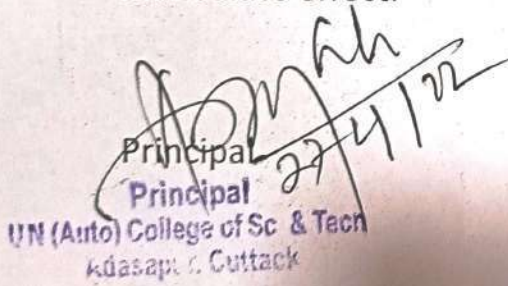 Principal
27/4/22
Principal
UN (Auto) College of Sc & Tech
Adasapur, Cuttack